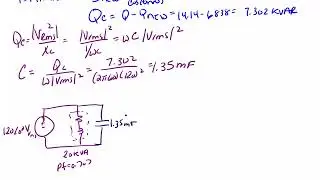 Qc = Q - Qnew = 14.14 - 6.838 = 7.302 kVAR
Qc = |Vrms|²/Xc = |Vrms|²/(1/ωc) = ωC|Vrms|²
C = Qc/(ω|Vrms|²) = 7.302/((2π60)(120)²) = 1.35mF
120∠0° Vrms
1.35mF
20kVA
pf=0.707